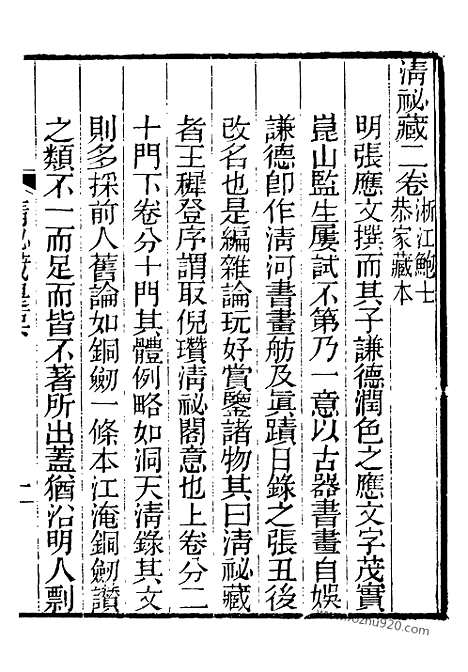 清祕藏二卷浙江鮑士恭家藏本
明張應文撰而其子謙德潤色之應文字茂實
崑山監生屢試不第乃一意以古器書畫自娛
謙德卽作淸河書畫舫及眞蹟日錄之張丑後
改名也是編雜論玩好賞鑒諸物其曰淸祕藏
者王穉登序謂取倪瓚淸祕閣意也上卷分二
十門下卷分十門其體例略如洞天淸錄其文
則多採前人舊論如銅劒一條本江淹銅劒讚
之類不一而足而皆不著所出蓋猶沿明人剽